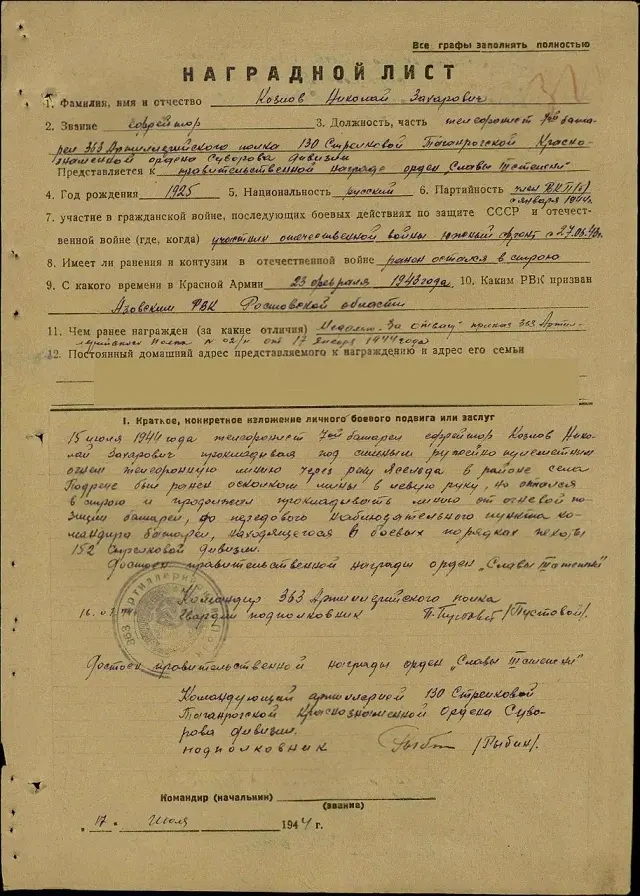 Все графы заполнять полностью
НАГРАДНОЙ ЛИСТ
31
1. Фамилия, имя и отчество Козлов Николай Захарович
2. Звание ефрейтор 3. Должность, часть телефонист 7ой бата-
реи 363 Артиллерийского полка 130 Стрелковой Таганрогской Красно-
знаменной ордена Суворова дивизии
Представляется к правительственной награде орден "Славы III степени"
4. Год рождения 1925 5. Национальность русский 6. Партийность член ВКП(б)
с января 1944г.
7. участие в гражданской войне, последующих боевых действиях по защите СССР и отечест-
венной войне (где, когда) участник отечественной войны южный фронт с
8. Имеет ли ранения и контузии в отечественной войне ранен остался в строю
9. С какого времени в Красной Армии 23 февраля 1943 года 10. Каким РВК призван
Азовским РВК Ростовской области
11. Чем ранее награжден (за какие отличия) Медалью "За отвагу" приказ 363 Артил-
лерийского полка № 02/н от 17 января 1944 года
12. Постоянный домашний адрес представляемого к награждению и адрес его семьи
I. Краткое, конкретное изложение личного боевого подвига или заслуг
15 июля 1944 года телефонист 7ой батареи ефрейтор Козлов Нико-
лай Захарович прокладывая под сильным ружейно пулеметным
огнем телефонную линию через реку Ясельда в районе села
был ранен осколком мины в левую руку, но остался
в строю и продолжил прокладывать линию от огневой по-
зиции батареи, до передового наблюдательного пункта ко-
мандира батареи, находящегося в боевых порядках пехоты
152 Стрелковой дивизии.
Достоин правительственной награды орден "Славы III степени"
Командир 363 Артиллерийского полка
Гвардии подполковник /Пустовой/.
Достоин правительственной награды орден "Славы III степени"
Командующий артиллерией 130 Стрелковой
Таганрогской Краснознаменной Ордена Суво-
рова дивизии.
подполковник /Рыбин/.
Командир (начальник)
(звание)
"17" Июля 1944 г.